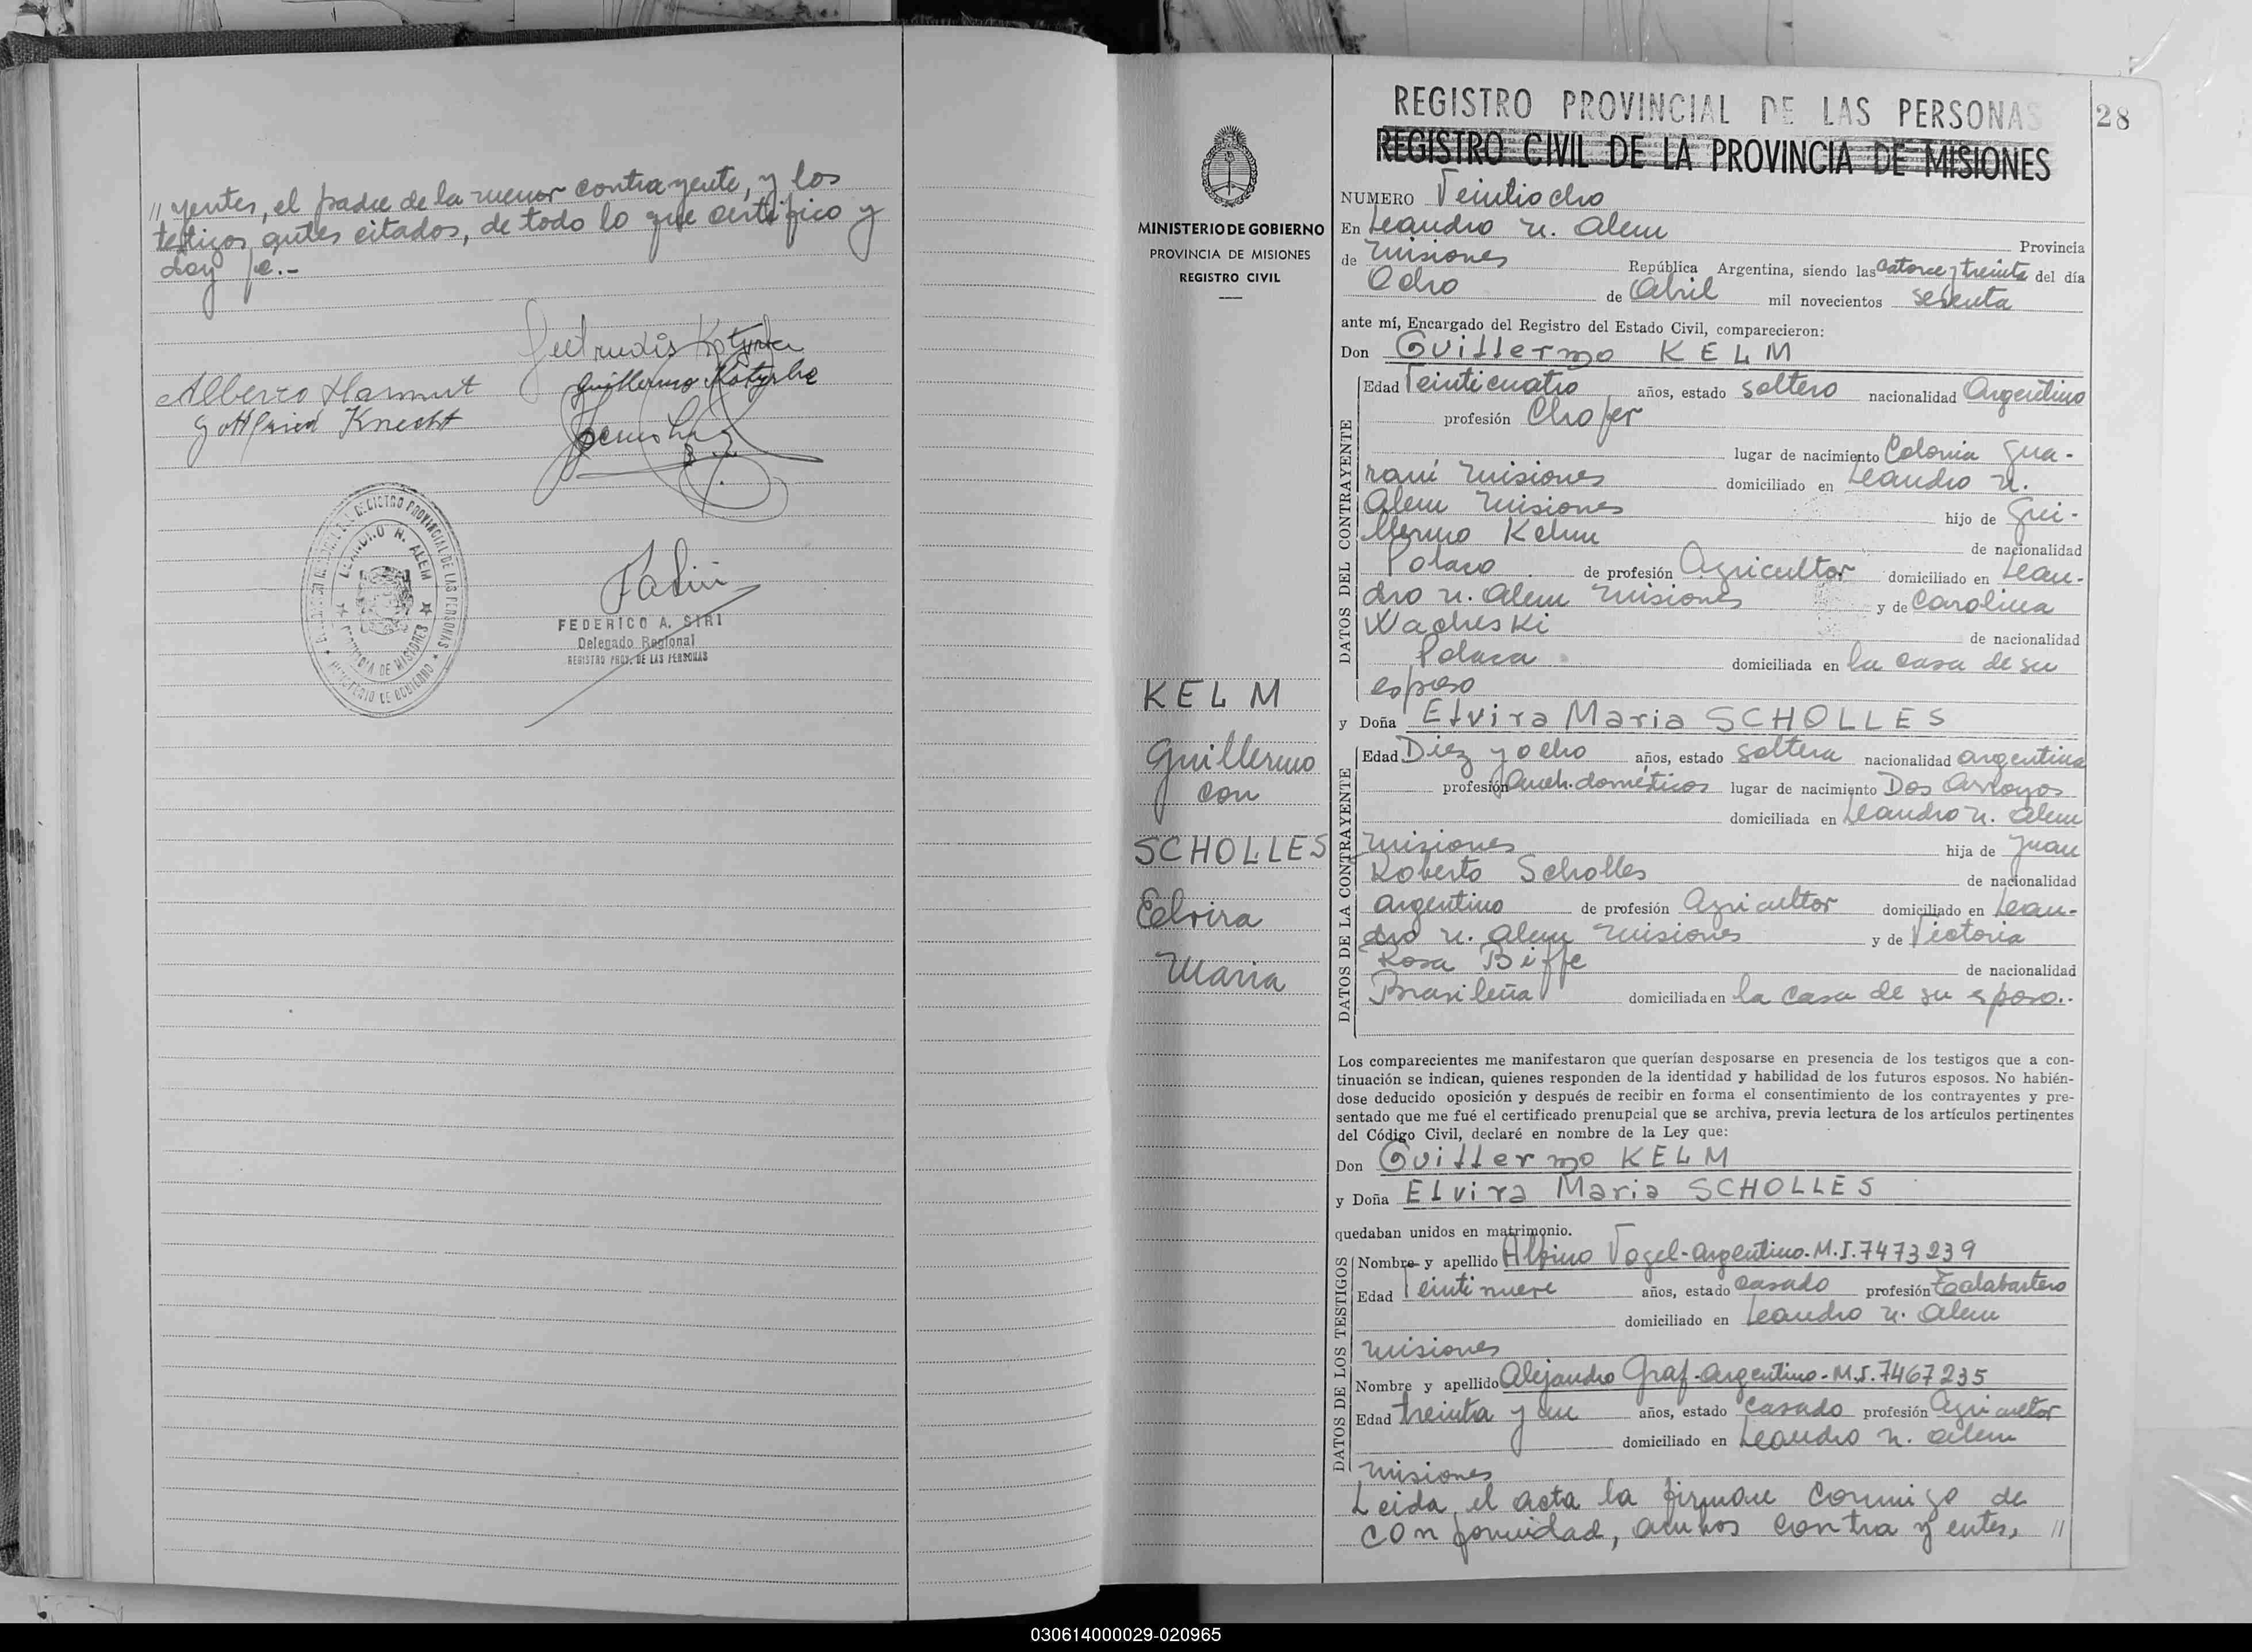 // yentes, el padre de la menor contrayente, y los
testigos antes citados, de todo lo que certifico y
doy fe.-
Gertrudis Kotyrba
Alberto Hammut
Guillermo Kotyrba
Gottfried Knecht
REGISTRO PROVINCIAL DE LAS PERSONAS
LEANDRO N. ALEM
PROVINCIA DE MISIONES
MINISTERIO DE GOBIERNO
FEDERICO A. SIRI
Delegado Regional
REGISTRO PROV. DE LAS PERSONAS
MINISTERIO DE GOBIERNO
PROVINCIA DE MISIONES
REGISTRO CIVIL
KELM
Guillermo
con
SCHOLLES
Elvira
Maria
REGISTRO PROVINCIAL DE LAS PERSONAS
28
REGISTRO CIVIL DE LA PROVINCIA DE MISIONES
NUMERO Veintiocho
En Leandro N. Alem Provincia
de Misiones República Argentina, siendo las catorce y treinta del día
Ocho de Abril mil novecientos
ante mí, Encargado del Registro del Estado Civil, comparecieron:
Don Guillermo KELM
DATOS DEL CONTRAYENTE
Edad Veinticuatro años, estado soltero nacionalidad Argentino
profesión Chofer
lugar de nacimiento Colonia Gua-
raní Misiones domiciliado en Leandro N.
Alem Misiones hijo de Gui-
llermo Kelm de nacionalidad
Polaco de profesión Agricultor domiciliado en Lean-
dro N. Alem Misiones y de Carolina
Wacheski de nacionalidad
Polaca domiciliada en la casa de su
esposo
y Doña Elvira Maria SCHOLLES
DATOS DE LA CONTRAYENTE
Edad Diez y ocho años, estado soltera nacionalidad argentina
profesión Queh. domésticos lugar de nacimiento Dos Arroyos
domiciliada en Leandro N. Alem
Misiones hija de Juan
Roberto Scholles de nacionalidad
argentino de profesión Agricultor domiciliado en Lean-
dro N. Alem Misiones y de Victoria
Rosa Biffe de nacionalidad
Brasileña domiciliada en la casa de su esposo.-
Los comparecientes me manifestaron que querían desposarse en presencia de los testigos que a con-
tinuación se indican, quienes responden de la identidad y habilidad de los futuros esposos. No habién-
dose deducido oposición y después de recibir en forma el consentimiento de los contrayentes y pre-
sentado que me fué el certificado prenupcial que se archiva, previa lectura de los artículos pertinentes
del Código Civil, declaré en nombre de la Ley que:
Don Guillermo KELM
y Doña Elvira Maria SCHOLLES
quedaban unidos en matrimonio.
DATOS DE LOS TESTIGOS
Nombre y apellido Albino Vogel-Argentino-M.I.7473239
Edad Veintinueve años, estado casado profesión Talabartero
domiciliado en Leandro N. Alem
Misiones
Nombre y apellido Alejandro Graf-Argentino-M.I.7467235
Edad treinta y un años, estado casado profesión Agricultor
domiciliado en Leandro N. Alem
Misiones
Leida el acta la firman conmigo de
conformidad, ambos contrayentes, //
030614000029-020965